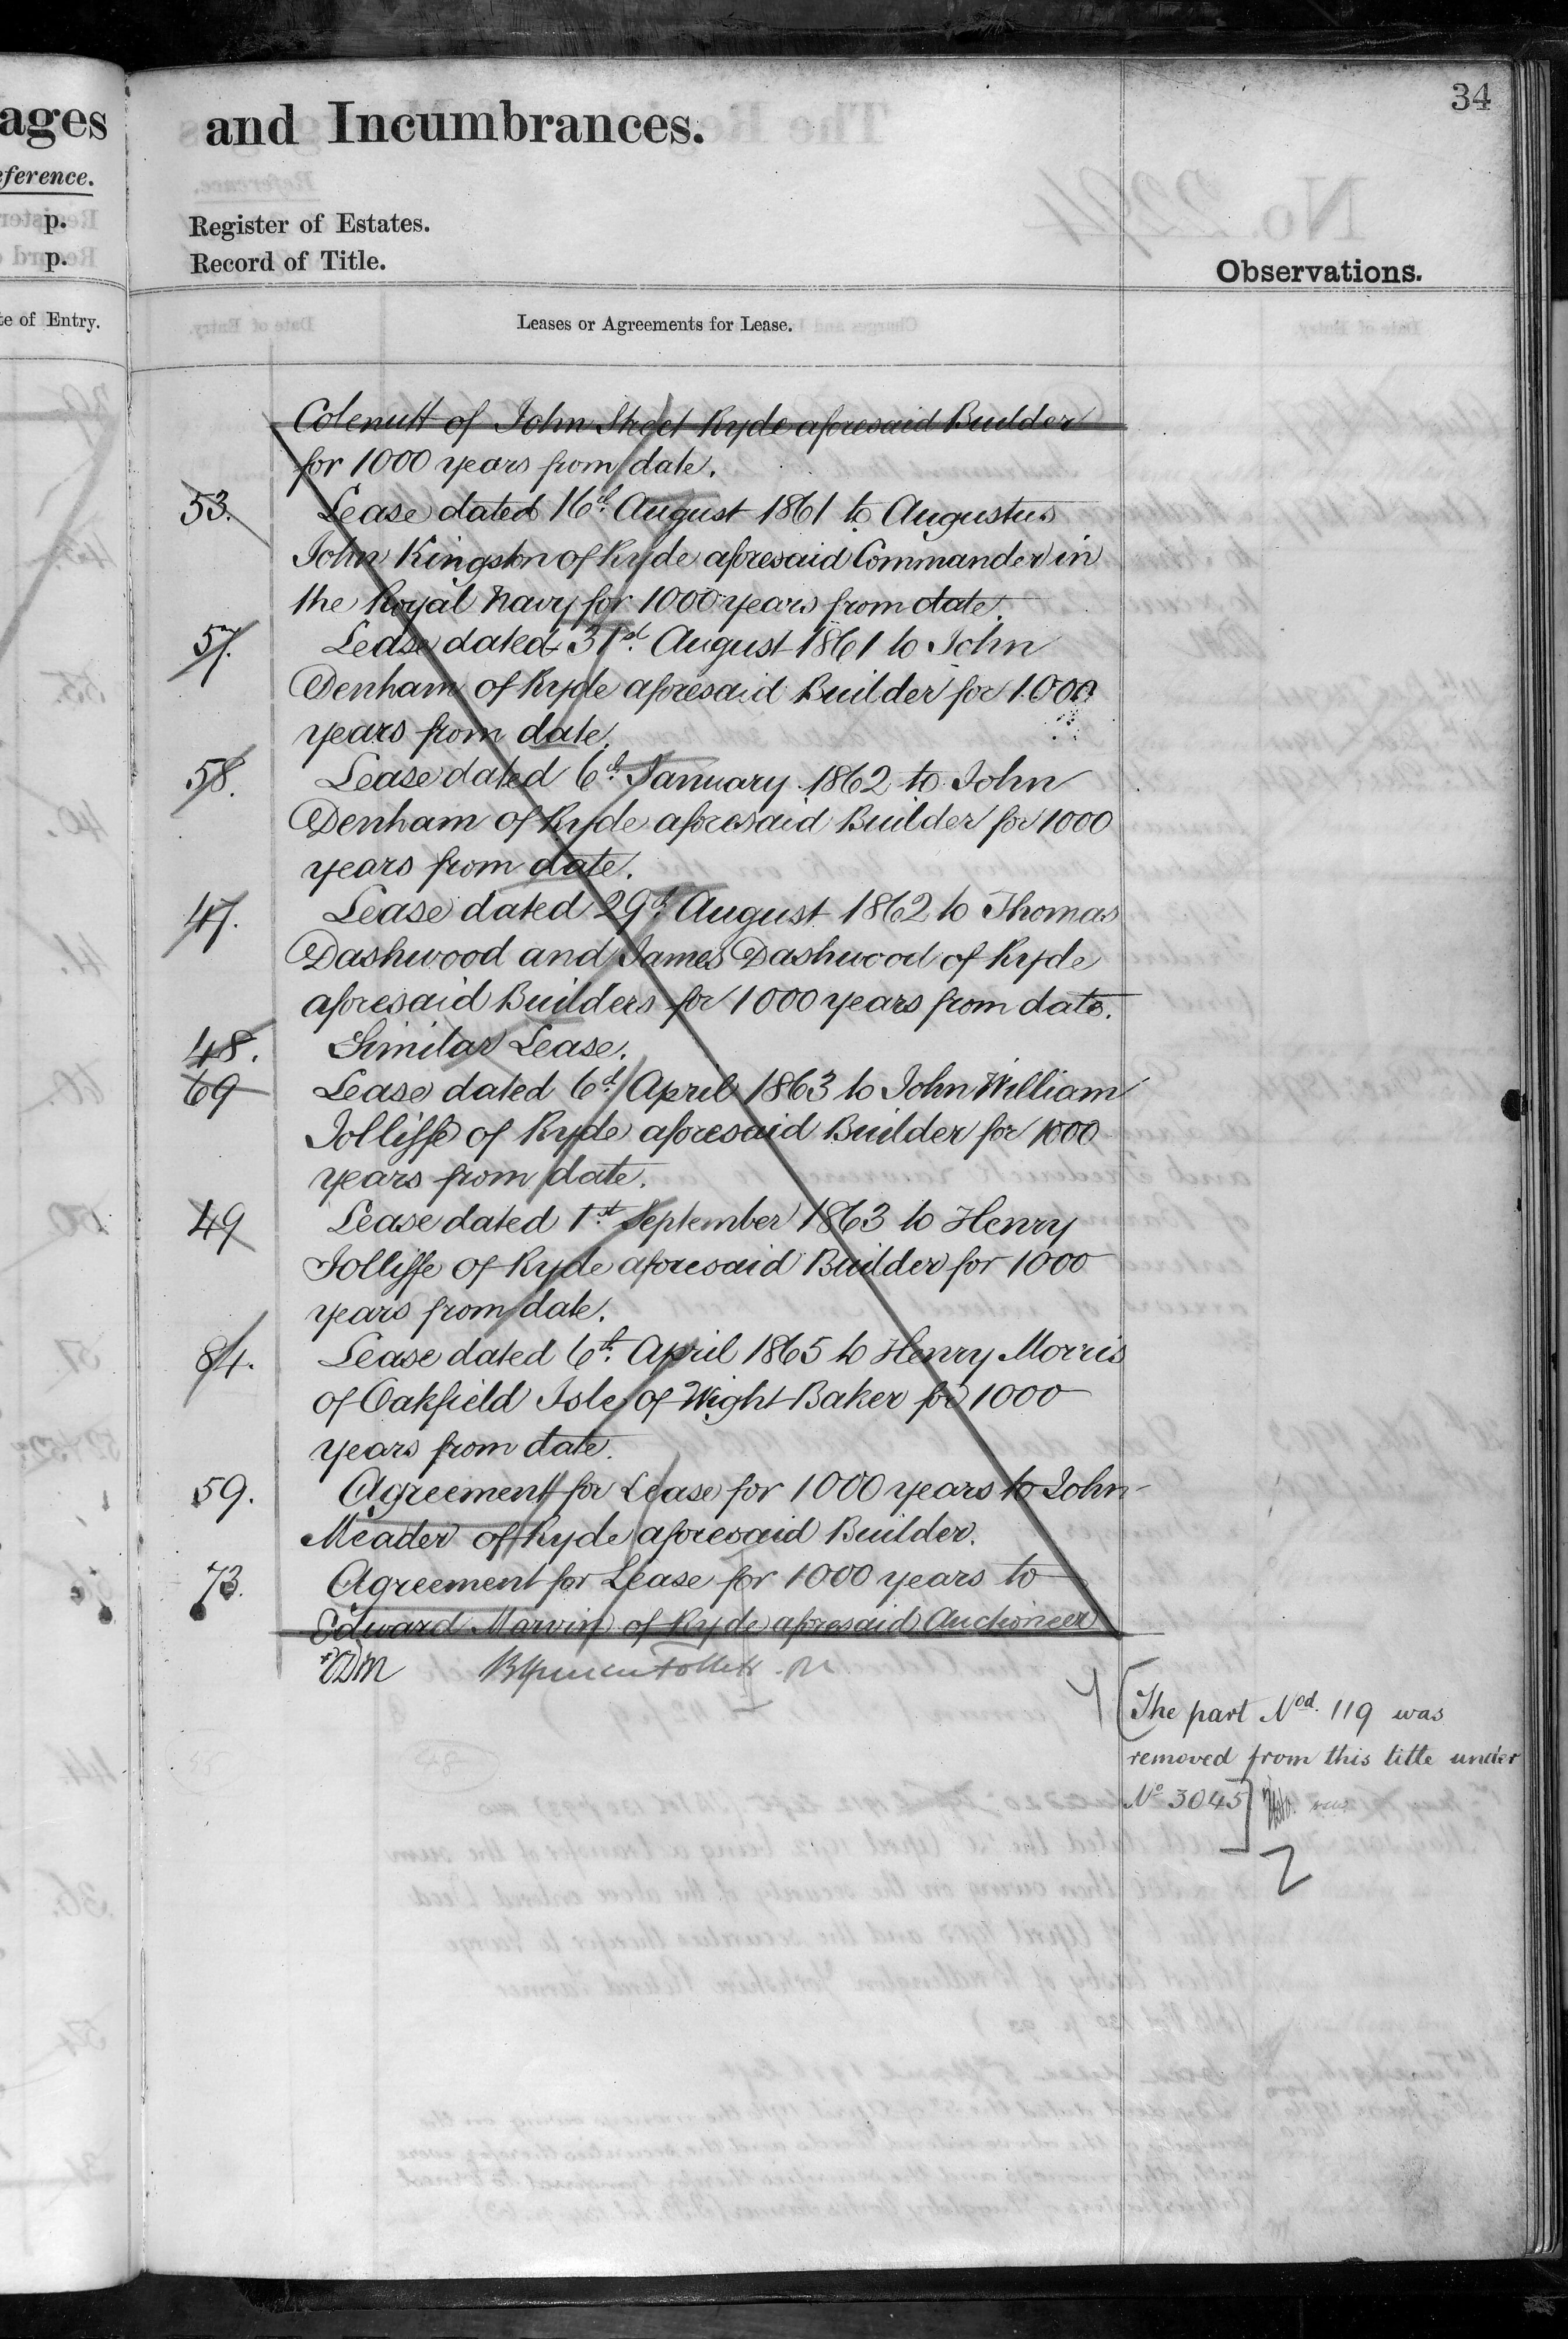 ages
eference.
p.
p.
te of Entry.
34
and Incumbrances.
Register of Estates.
Record of Title.
Observations.
Leases or Agreements for Lease.
Colenutt of John Street Ryde aforesaid Builder
for 1000 years from date.
53. Lease dated 16th August 1861 to Augustus
John Kingston of Ryde aforesaid Commander in
the Royal Navy for 1000 years from date.
57. Lease dated 31st August 1861 to John
Denham of Ryde aforesaid Builder for 1000
years from date.
58. Lease dated 6th January 1862 to John
Denham of Ryde aforesaid Builder for 1000
years from date.
47. Lease dated 29th August 1862 to Thomas
Dashwood and James Dashwood of Ryde
aforesaid Builders for 1000 years from date.
48. Similar Lease.
69 Lease dated 6th April 1863 to John William
Jolliffe of Ryde aforesaid Builder for 1000
years from date.
49 Lease dated 1st September 1863 to Henry
Jolliffe of Ryde aforesaid Builder for 1000
years from date.
84. Lease dated 6th April 1865 to Henry Morris
of Oakfield Isle of Wight Baker for 1000
years from date.
59. Agreement for Lease for 1000 years to John
Meader of Ryde aforesaid Builder.
73. Agreement for Lease for 1000 years to
Edward Marvin of Ryde aforesaid Auctioneer
The part Nod. 119 was
removed from this title under
No 3045